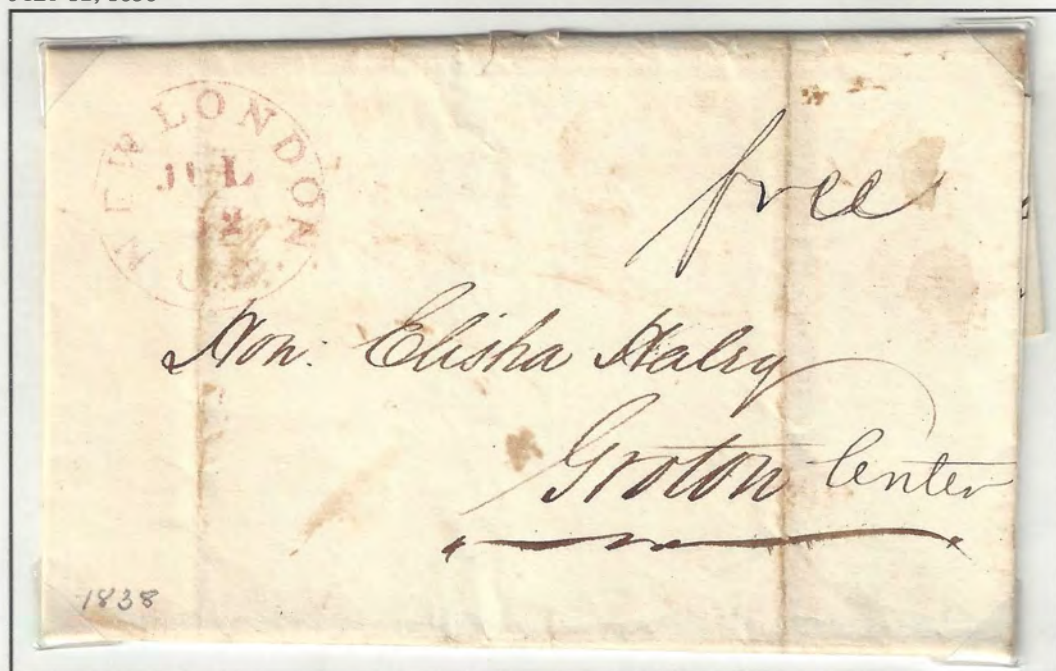 NEW LONDON
JUL
free
Hon: Elisha Haley
Groton Center
1838